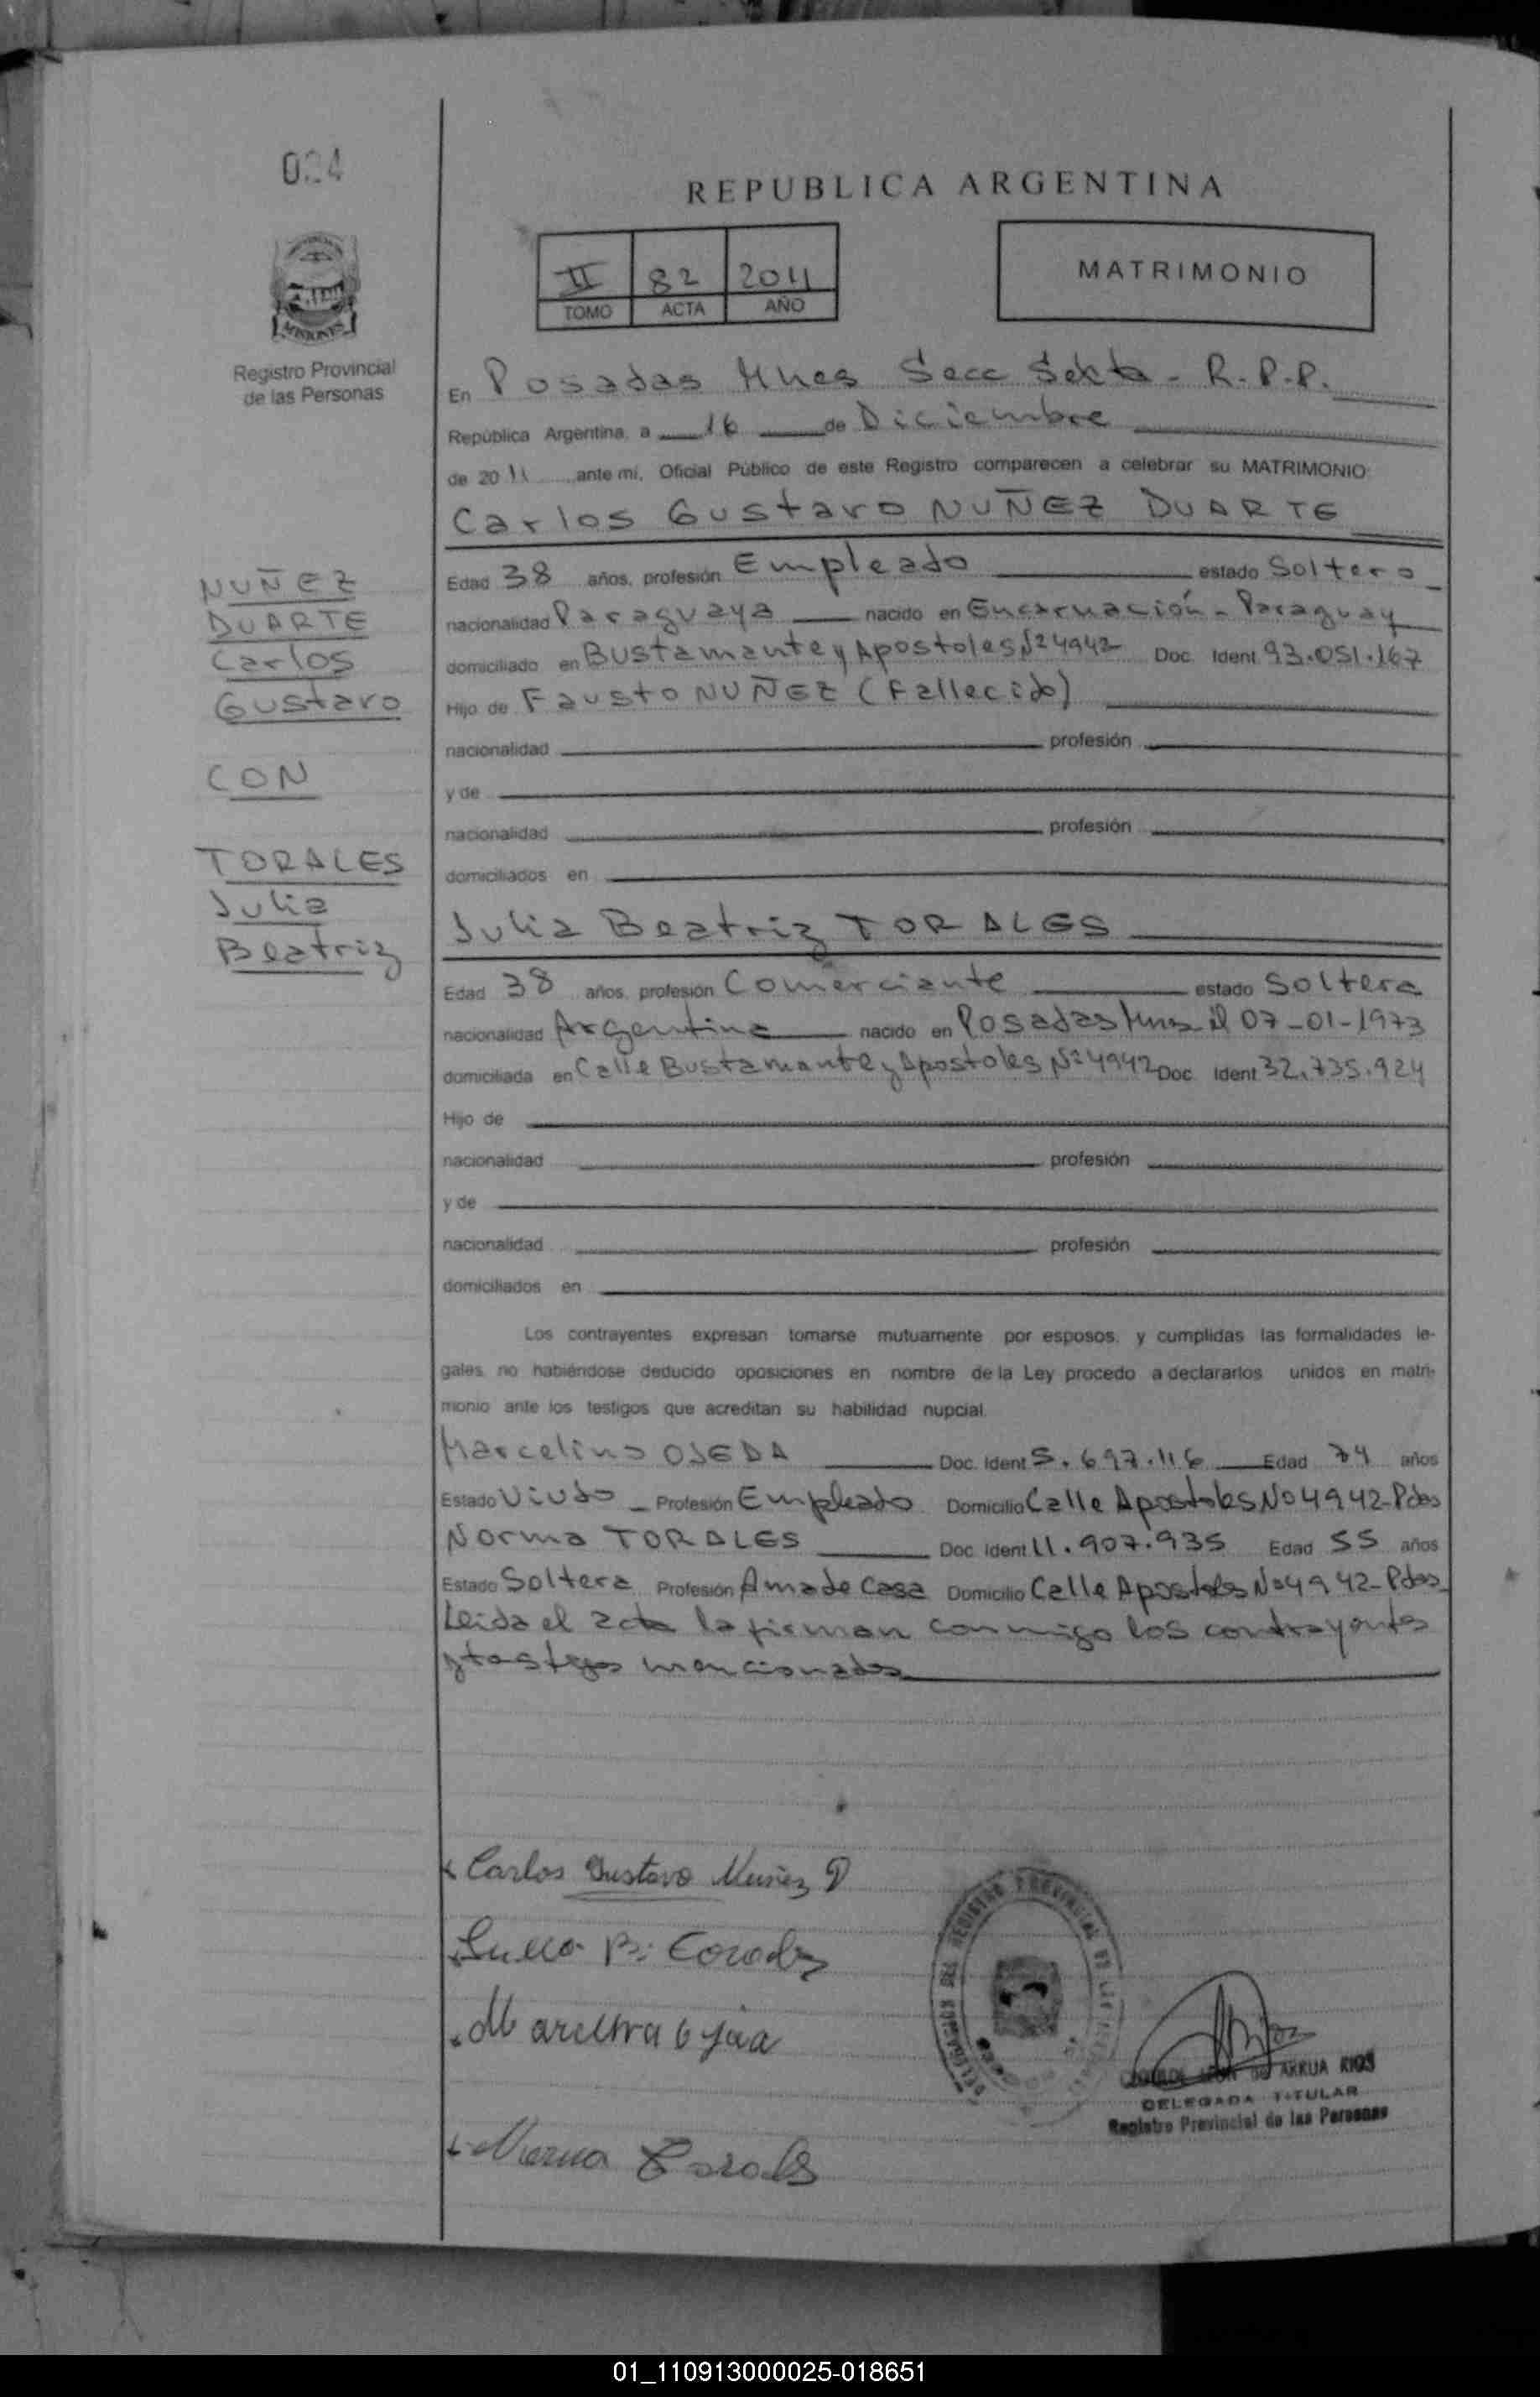 024
REPUBLICA ARGENTINA
II 82 2011
TOMO ACTA AÑO
MATRIMONIO
MISIONES
Registro Provincial
de las Personas
En Posadas Mnes Secc Sexta - R.P.P.
República Argentina, a 16 de Diciembre
de 2011 ante mi, Oficial Público de este Registro comparecen a celebrar su MATRIMONIO:
Carlos Gustavo NUÑEZ DUARTE
NUÑEZ
DUARTE
Carlos
Gustavo
CON
TORALES
Julia
Beatriz
Edad 38 años, profesión Empleado estado Soltero
nacionalidad Paraguaya nacido en Encarnación - Paraguay
domiciliado en Bustamante y Apostoles Nº 4942 Doc. Ident 93.051.167
Hijo de Fausto NUÑEZ (Fallecido)
nacionalidad profesión
y de
nacionalidad profesión
domiciliados en
Julia Beatriz TORALES
Edad 38 años, profesión Comerciante estado Soltera
nacionalidad Argentina nacido en Posadas Mnes el 07-01-1973
domiciliada en Calle Bustamante y Apostoles Nº 4942 Doc. Ident 32.735.924
Hijo de
nacionalidad profesión
y de
nacionalidad profesión
domiciliados en
Los contrayentes expresan tomarse mutuamente por esposos, y cumplidas las formalidades le-
gales no habiéndose deducido oposiciones en nombre de la Ley procedo a declararlos unidos en matri-
monio ante los testigos que acreditan su habilidad nupcial.
Marcelino OJEDA Doc. Ident 5.697.116 Edad 74 años
Estado Viudo - Profesión Empleado Domicilio Calle Apostoles Nº 4942-Pdas
Norma TORALES Doc. Ident 11.907.935 Edad 55 años
Estado Soltera Profesión Ama de Casa Domicilio Calle Apostoles Nº 4942-Pdas
Leida el acta la firman conmigo los contrayentes
y testigos mencionados
Carlos Gustavo Nuñez D
Norma Torales
DE ARRUA RIOS
DELEGADA TITULAR
Registro Provincial de las Personas
01_110913000025-018651